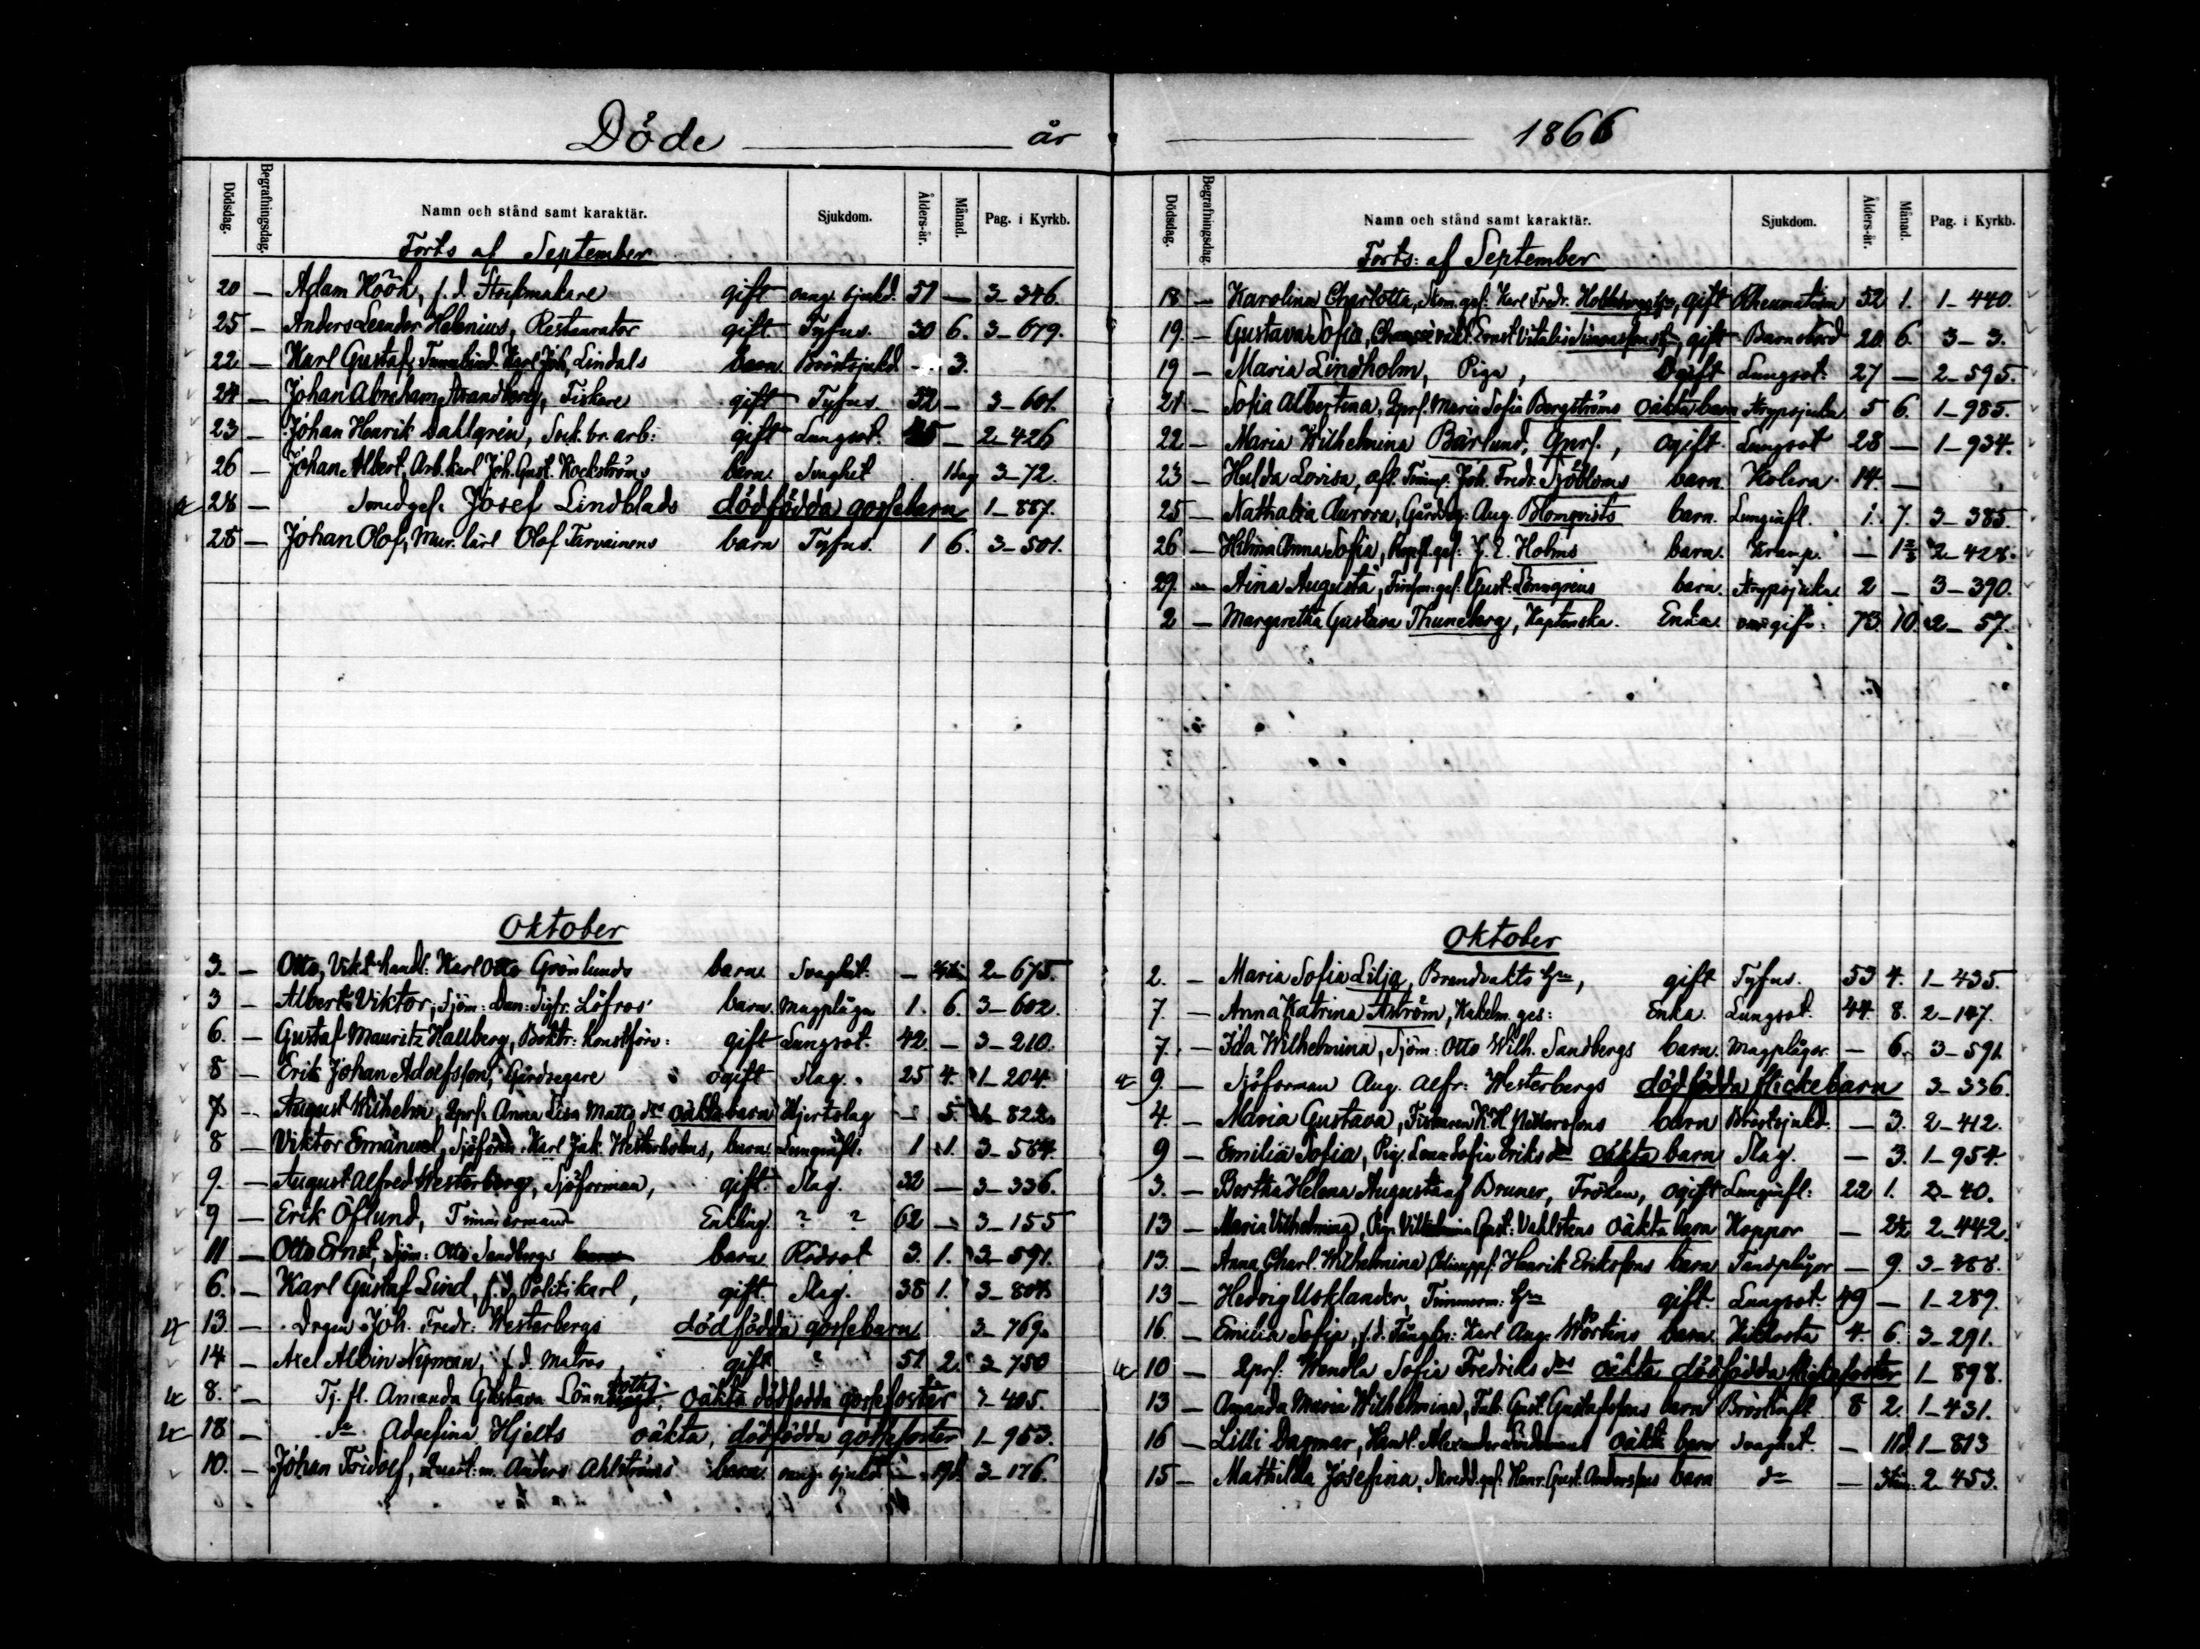 Döde år
Dödsdag. Begrafningsdag. Namn och stånd samt karaktär. Sjukdom. Ålders-år. Månad. Pag. i Kyrkb.
Forts af September
20 — Adam Höök, f. d. gift sjukd. 51 — 3—346.
25 — Anders Leander Helenius, Restaurator gift Tyfus. 30 6. 3—679.
22 — Karl Gustaf, Karl Joh. Lindals barn Bröstsjukd — 3.
24 — Johan Abraham Strandberg, Fiskare gift Tyfus. 32 — 3—601.
23 — Johan Henrik Dahlgren, arb: gift Lungsot. — 2—426
26 — Johan Albert, Arb. karl Joh. Gust. Rockströms barn Svaghet 1 dag 3—72.
28 — Smedges. Josef Lindblads dödfödda gossebarn 1—887.
28 — Johan Olof, Mur. lärl Olof Tarvainens barn Tyfus. 1 6. 3—501.
Oktober
3. — Otto, handl: Karl Otto Grönlunds barn. Svaghet. — 2—675.
3 — Albert Viktor, Sjöm: Dan: Sigfr: Löfros' barn. Magplåga 1. 6. 3—602.
6. — Gustaf Mauritz Hallberg, Boktr: Konstförv: gift Lungsot. 42 — 3—210.
8 — Erik Johan Adolfsson, Gårdsegare ogift Slag. 25 4. 1—204.
7 — August Wilhelm, Anna Lisa Matts dr oäkta barn Hjertslag — 5
8 — Viktor Emanuel, Sjöförm. Karl Jak. Westerholms, barn. Lunginfl: 1 1. 3—584.
9. — August Alfred Westerberg, Sjöforman, gift Slag. 32 — 3—336.
9 — Erik Öflund, Timmerman Enkling. ? ? 62 — 3—155
11 — Otto Ernst, Sjöm: Otto Sandbergs barn barn. Rödsot 3. 1. 3—591.
6. — Karl Gustaf Lind, f. d. Politikarl, gift. Slag. 38 1.
13. — Drgen Joh. Fredr: Westerbergs dödfödda gossebarn 3—769.
14 — Axel Albin Nyman, f. d. Matros gift 51 2. 3—750
8. — Tj. fl. Amanda Gustava oäkta dödfödda gossefoster 2—405.
18 — do Adolfina Hjelts oäkta, dödfödda gossefoster 1—953.
10. — Johan Fridolf, Anders Ahlströms barn. sjukd — 19d. 3—176.
1866
Dödsdag. Begrafningsdag. Namn och stånd samt karaktär. Sjukdom. Ålders-år. Månad. Pag. i Kyrkb.
Forts: af September
18 — Karolina Charlotta, Karl Fredr. gift Rheumatism 52 1. 1—440.
19. — Gustava Sofia, Ernst Vitalis gift Barnsbörd 20 6. 3—3.
19 — Maria Lindholm, Piga, Ogift Lungsot. 27 — 2—595.
21 — Sofia Albertina, Maria Sofia Bergströms oäkta barn Strypsjuka 5 6. 1—985.
22 — Maria Wilhelmina Bärlund, Qprs., ogift Lungsot 28 — 1—934.
23 — Hulda Lovisa, Joh. Fredr. Sjöbloms barn. Kolera 14 —
25 — Nathalia Aurora, Gårdsg: Aug. Blomqvists barn. Lunginfl. 1. 7. 3—385
26 — Helmina Anna Sofia, J. E. Holms barn. Kramp. — 1⅔ 2—428.
29. — Aina Augusta, Gust. Lönngrens barn. Strypsjuka 2 — 3—390.
2 — Margaretha Gustava Thuneberg, Kaptenska. Enka. 73 10. 2—57.
Oktober
2. — Maria Sofia Lilja, Brandvakts hru, gift Tyfus. 53 4. 1—435.
7. — Anna Katrina Åström, Kakelm. ges: Enka. Lungsot. 44 8. 2—147.
7. — Ida Wilhelmina, Sjöm: Otto Wilh. Sandbergs barn. Magplågor. — 6. 3—591
9. — Sjöforman Aug. Alfr: Westerbergs dödfödda flickebarn 3—336.
4. — Maria Gustava, Fiskaren K. H. barn Bröstsjukd. — 3. 2—412.
9 — Emilia Sofia, Pig. Lena Sofia Eriks dr oäkta barn Slag. — 3. 1—954.
3. — Bertha Helena Augusta af Bruner, Fröken, ogift Lunginfl: 22 1. 2—40.
13 — Maria Vilhelmina, Pig. Vilhelmina Gust. Vahlstens oäkta barn Koppor — 2½ 2—442.
13. — Anna Charl. Wilhelmina, Henrik Erikssons barn Tandplågor — 9. 3—388.
13 — Hedvig Usklander, Timmerm: hru gift. Lungsot. 49 — 1—289.
16. — Emilia Sofia, f. d. Karl Aug. Wörtins barn. Kikhosta 4. 6. 3—291.
10 — Qprs. Wendla Sofia Fredriks drs oäkta dödfödda flickefoster 1—898.
13 — Amanda Maria Wilhelmina, Gust. Gustafssons barn Bröstinfl. 8 2. 1—431.
16 — Lilli Dagmar, Handl. Alexander oäkta barn Svaghet. — 11d. 1—813
15 — Mathilda Josefina, Henr. Gust. Anderssons barn do — 3 tim. 2—453.